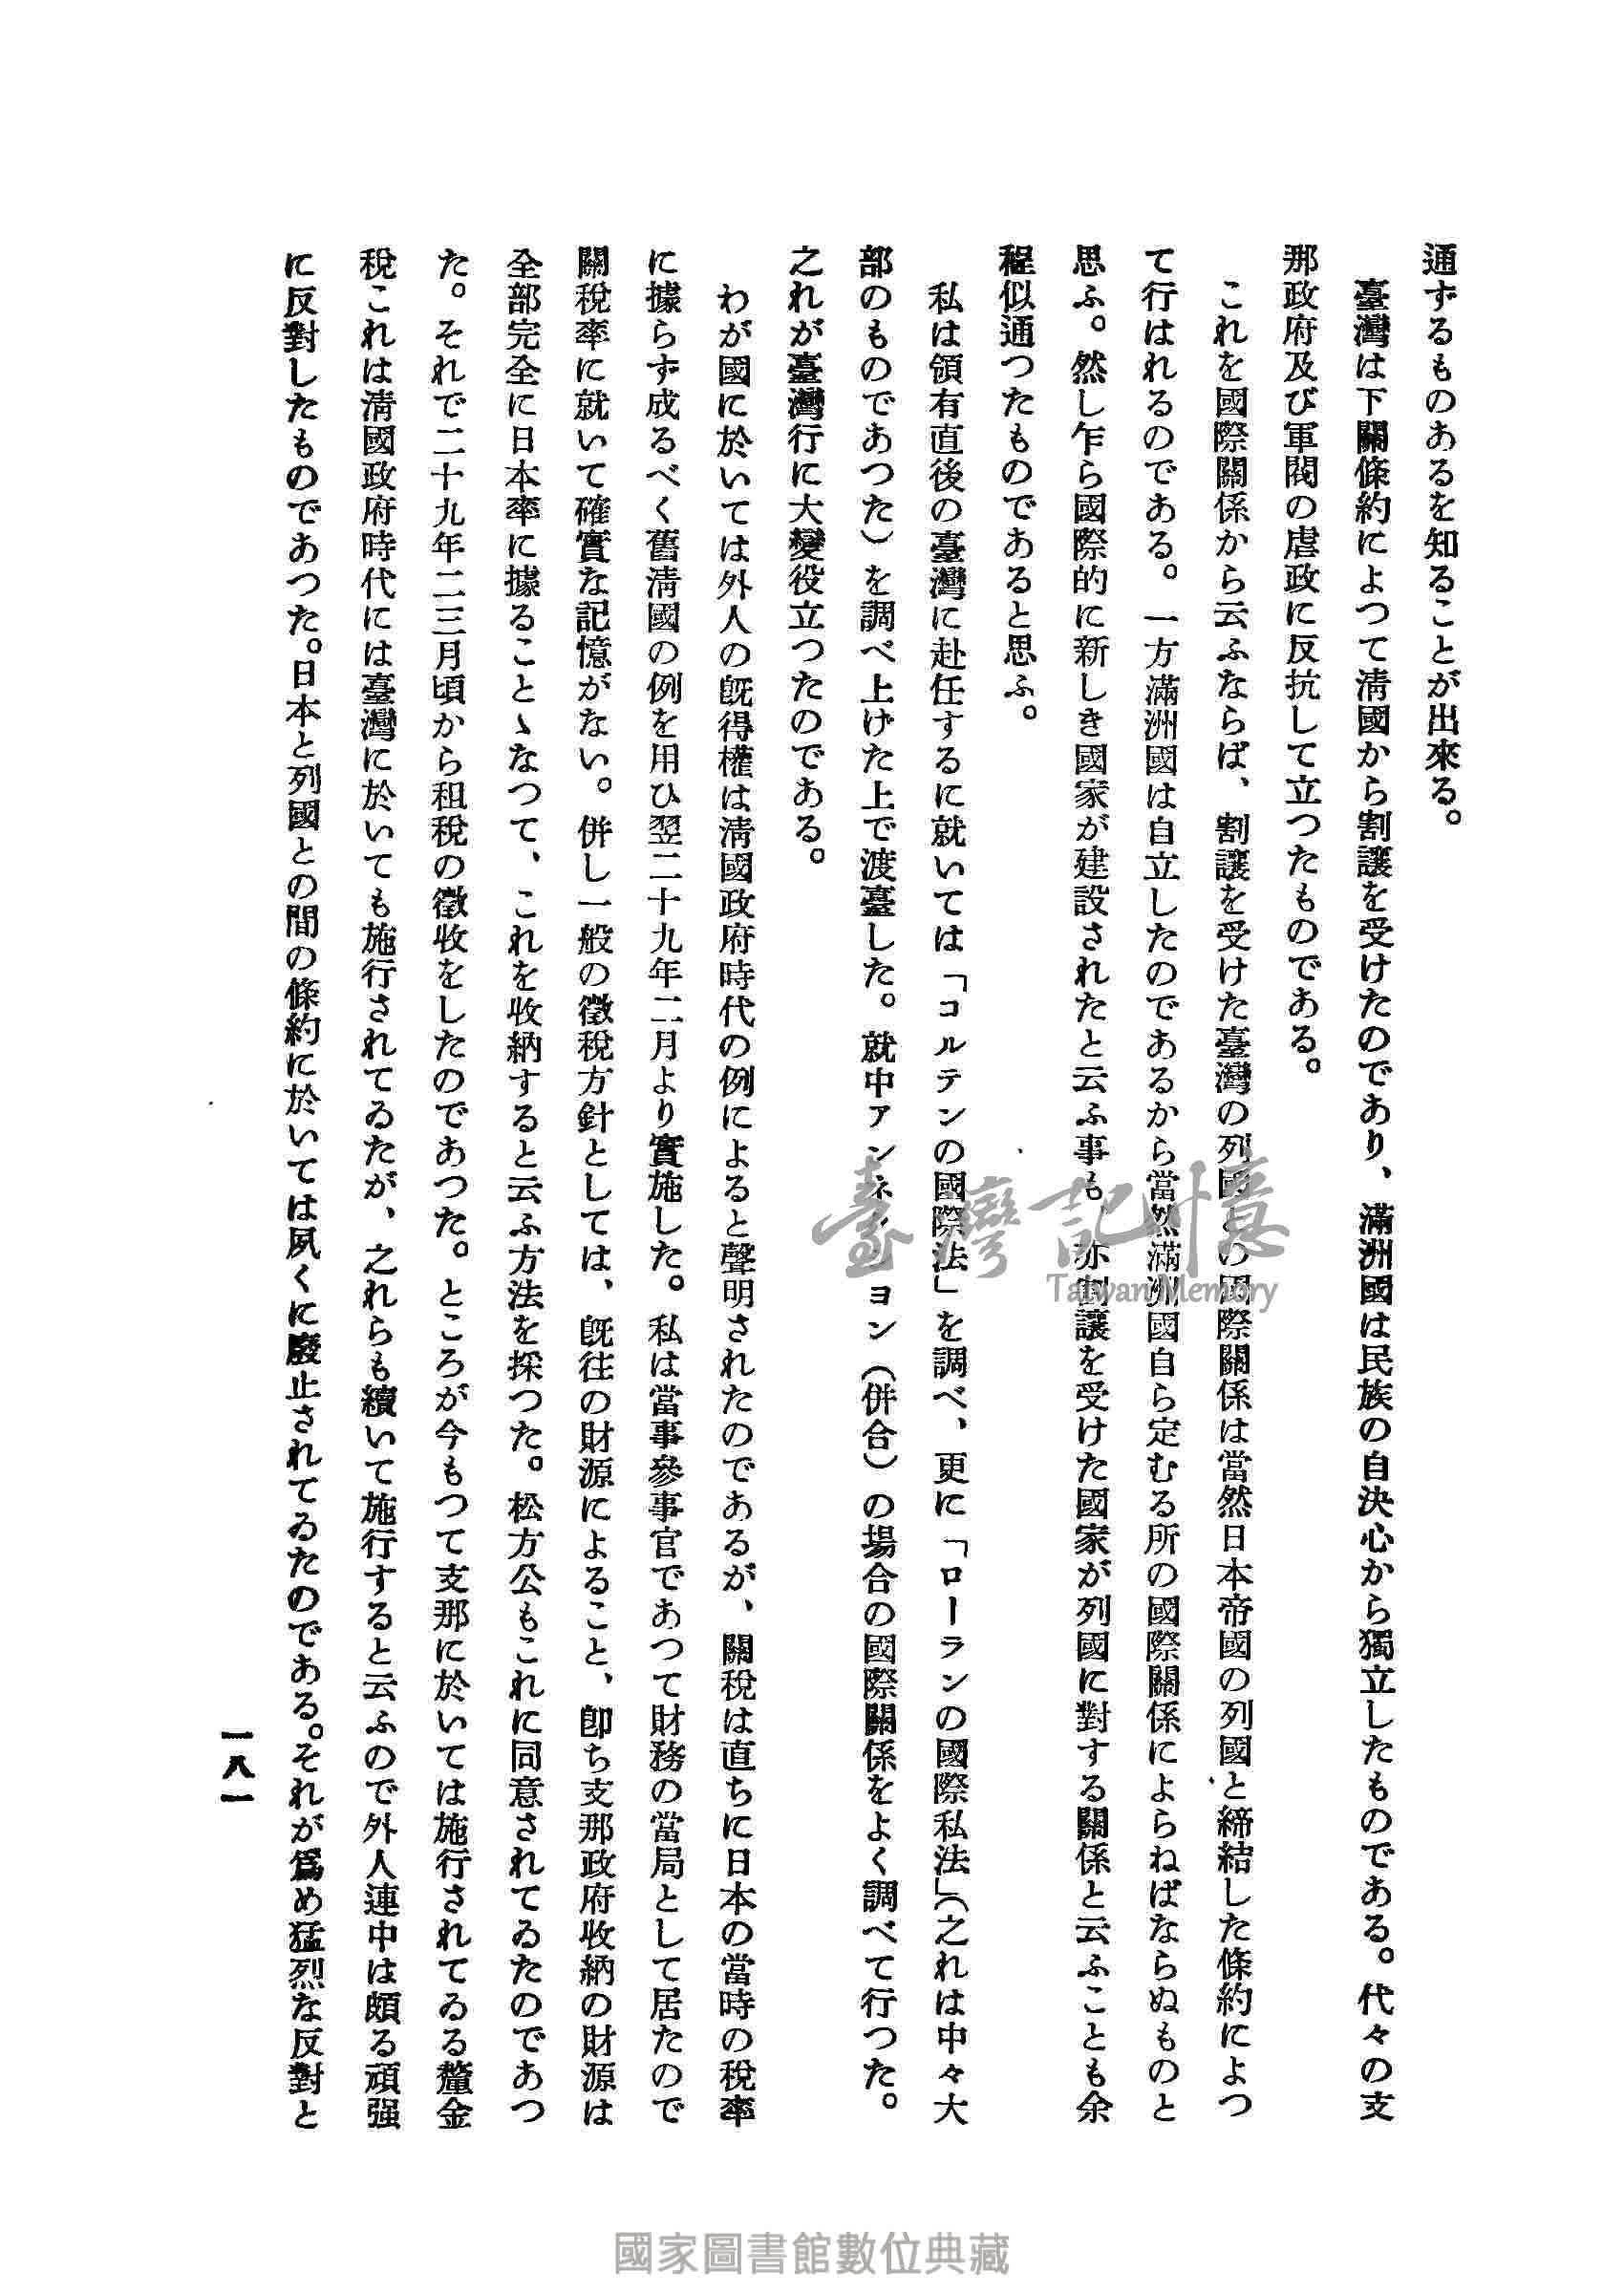 通ずるものあるを知ることが出來る。
臺灣は下關條約によつて淸國から割讓を受けたのであり、滿洲國は民族の自決心から獨立したものである。代々の支
那政府及び軍閥の虐政に反抗して立つたものである。
これを國際關係から云ふならば、割讓を受けた臺灣の列國との國際關係は當然日本帝國の列國と締結した條約によつ
て行はれるのである。一方滿洲國は自立したのであるから當然滿洲國自ら定むる所の國際關係によらねばならぬものと
思ふ。然し乍ら國際的に新しき國家が建設されたと云ふ事も、亦割讓を受けた國家が列國に對する關係と云ふことも余
程似通つたものであると思ふ。
私は領有直後の臺灣に赴任するに就いては「コルテンの國際法」を調べ、更に「ローランの國際私法」（之れは中々大
部のものであつた）を調べ上げた上で渡臺した。就中アンネクシヨン（併合）の場合の國際關係をよく調べて行つた。
之れが臺灣行に大變役立つたのである。
わが國に於いては外人の旣得權は淸國政府時代の例によると聲明されたのであるが、關稅は直ちに日本の當時の稅率
に據らず成るべく舊淸國の例を用ひ翌二十九年二月より實施した。私は當事參事官であつて財務の當局として居たので
關稅率に就いて確實な記憶がない。併し一般の徵稅方針としては、旣往の財源によること、卽ち支那政府收納の財源は
全部完全に日本率に據ることゝなつて、これを收納すると云ふ方法を採つた。松方公もこれに同意されてゐたのであつ
た。それで二十九年二三月頃から租稅の徵收をしたのであつた。ところが今もつて支那に於いては施行されてゐる釐金
稅これは淸國政府時代には臺灣に於いても施行されてゐたが、之れらも續いて施行すると云ふので外人連中は頗る頑强
に反對したものであつた。日本と列國との間の條約に於いては夙くに廢止されてゐたのである。それが爲め猛烈な反對と
一八一
臺灣記憶
Taiwan Memory
國家圖書館數位典藏